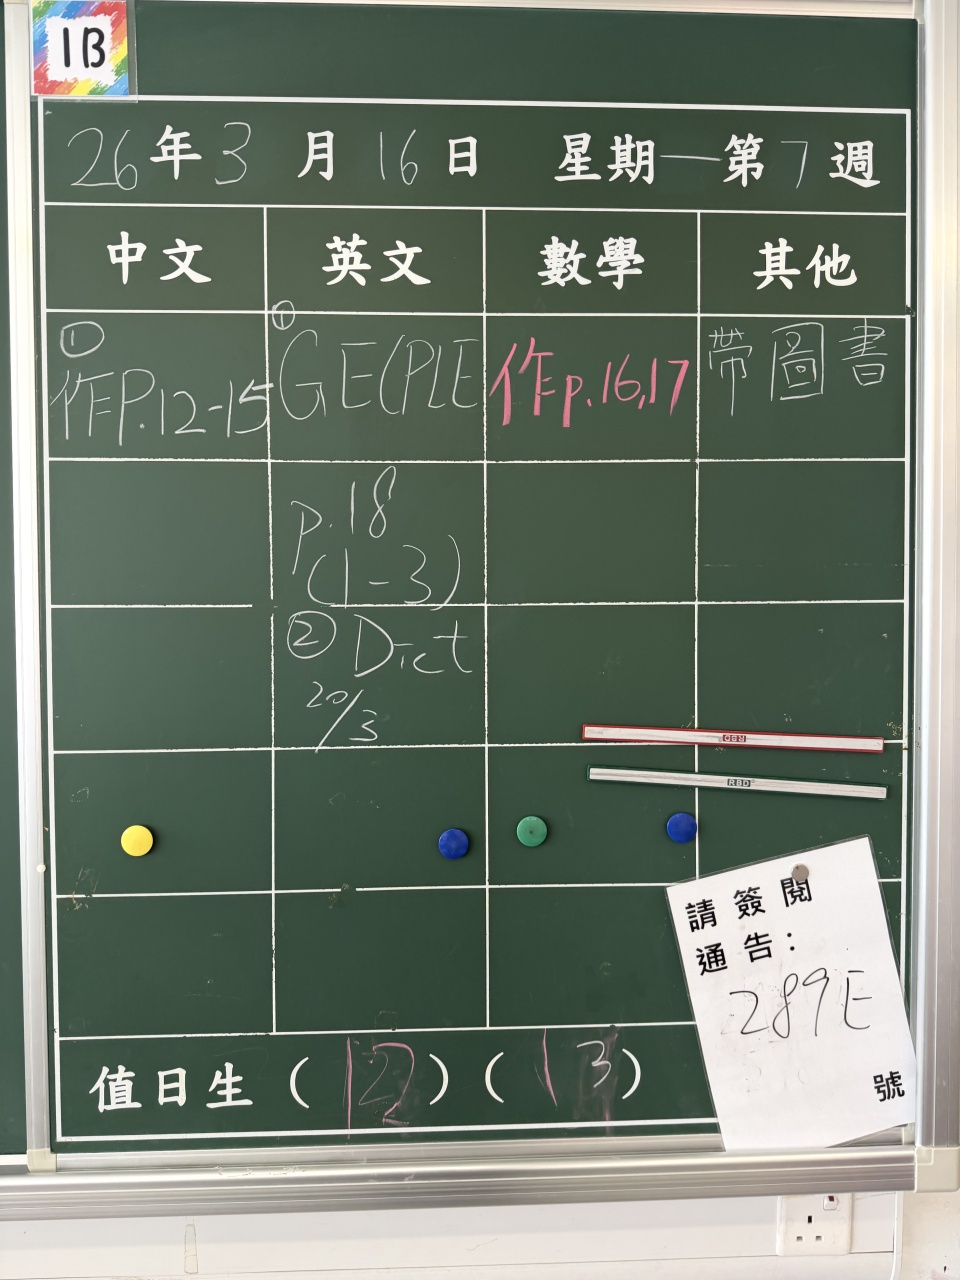 1B
26年3月16日 星期一第7週
中文 英文 數學 其他
① ①
作P.12-15 GE(PLE 作p.16,17 帶圖書
p.18
(1-3)
② Dict
20/3
RBD
RBD
請簽閱
通告：
289E
號
值日生 ( 12 ) ( 13 )